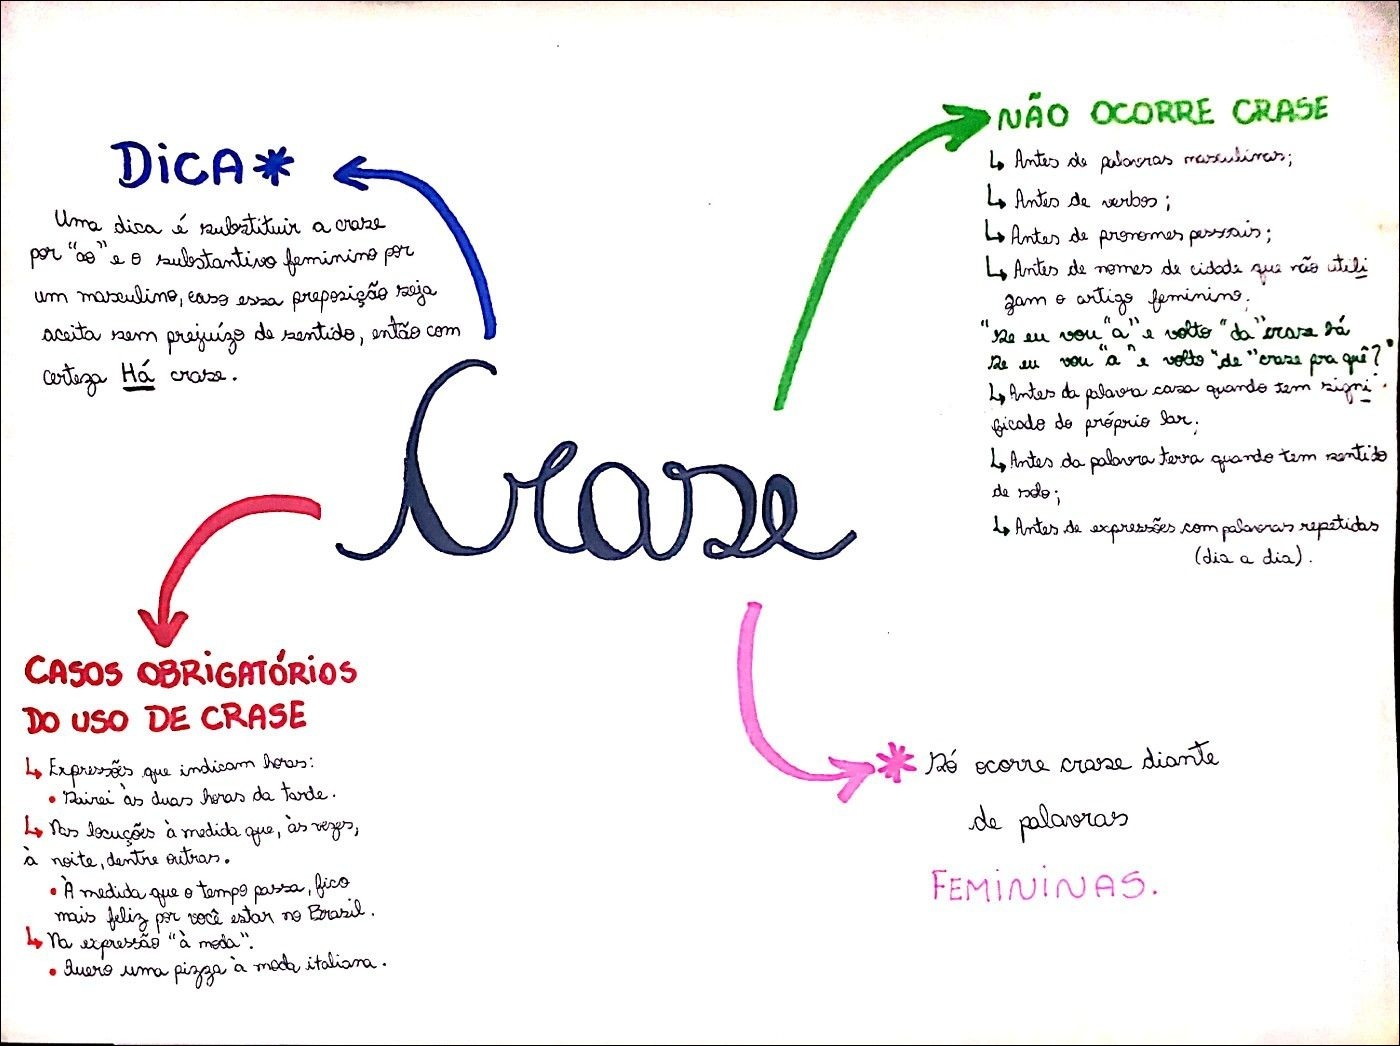 Crase
DiCA*
Uma dica é substituir a crase
por "ao" e o substantivo feminino por
um masculino, caso essa preposição seja
aceita sem prejuízo de sentido, então com
certeza Há crase.
NÃO OCORRE CRASE
↳ Antes de palavras masculinas;
↳ Antes de verbos;
↳ Antes de pronomes pessoais;
↳ Antes de nomes de cidade que não utili
zam o artigo feminino.
"Se eu vou "a" e volto "da" crase há
Se eu vou "a" e volto "de" crase pra quê?"
↳ Antes da palavra casa quando tem signi
ficado do próprio lar;
↳ Antes da palavra terra quando tem sentido
de solo;
↳ Antes de expressões com palavras repetidas
(dia a dia).
CASOS OBRIGATÓRIOS
DO USO DE CRASE
↳ Expressões que indicam horas:
• Sairei às duas horas da tarde.
↳ Nas locuções à medida que, às vezes,
à noite, dentre outras.
• À medida que o tempo passa, fico
mais feliz por você estar no Brasil.
↳ Na expressão "à moda".
• Quero uma pizza à moda italiana.
* Só ocorre crase diante
de palavras
FEMININAS.